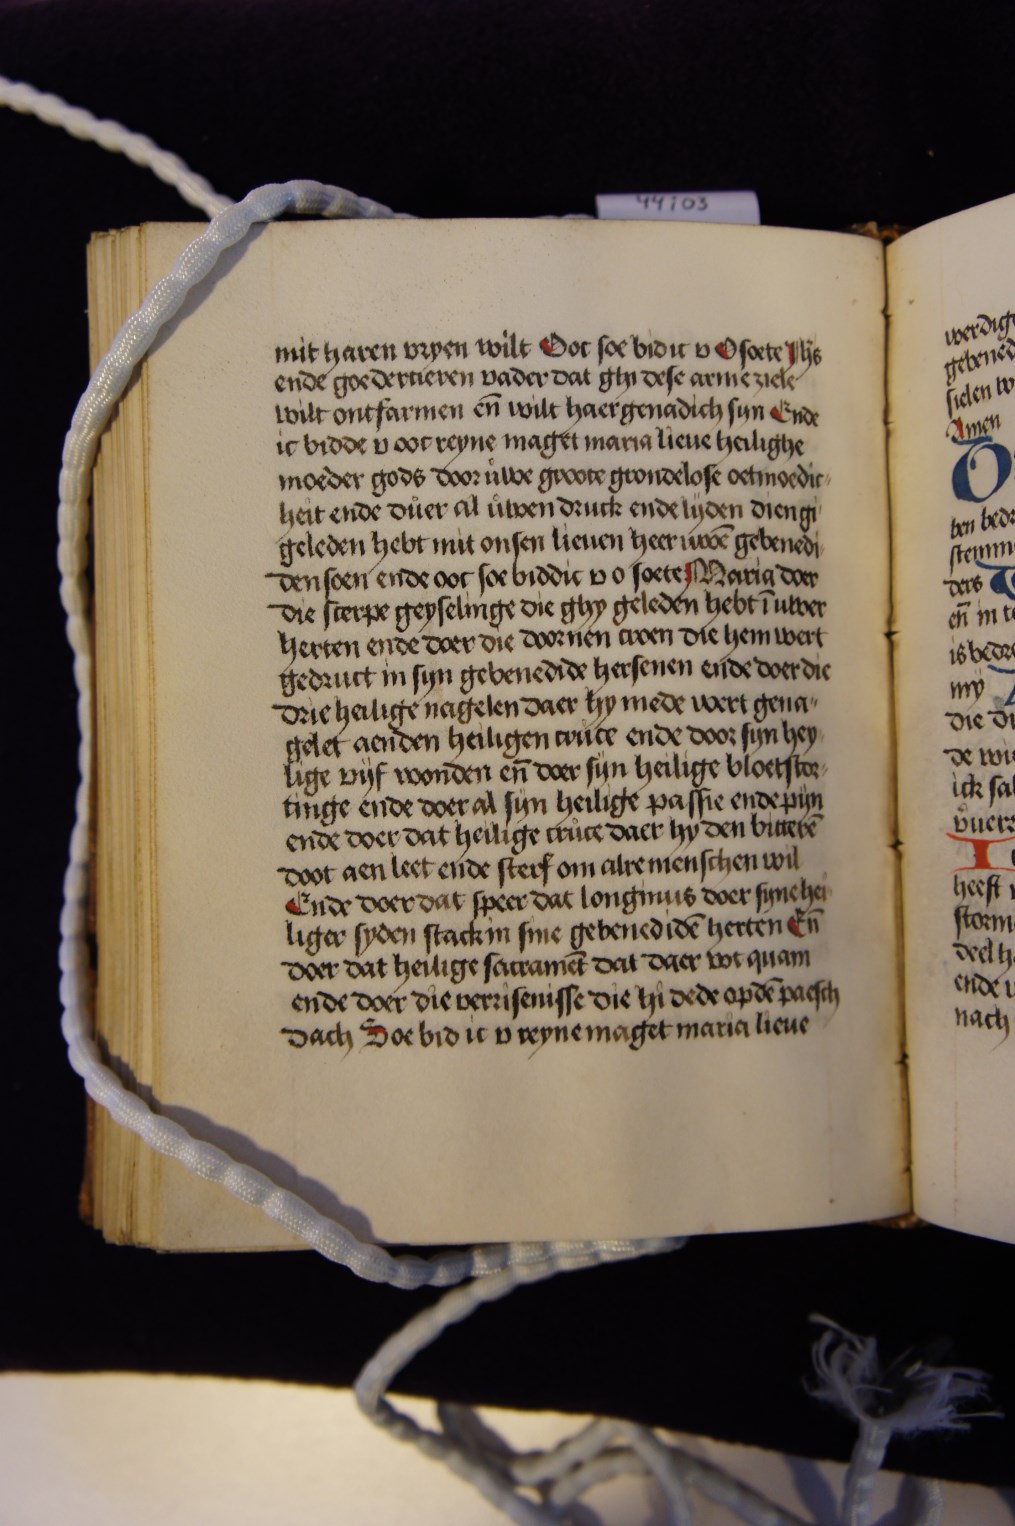 44i03
mit haren vryen wilt Ooc soe bid ic v O soete Jhs
ende goedertieren vader dat ghi dese arme ziele
wilt ontfarmen eñ wilt haer genadich syn Ende
ic bidde v ooc reyne maget maria lieue heilighe
moeder gods door uwe groote grondelose oetmoedic-
heit ende duer al uwen druck ende lyden dien gi
geleden hebt mit onsen lieuen heer uwē gebenedi
den soen ende ooc soe bidd ic v o soete Maria doer
die scerpe geyselinge die ghy geleden hebt ī uwer
herten ende doer die doornen croen die hem wert
gedruct in syn gebenedide hersenen ende doer die
drie heilige nagelen daer hy mede wert gena-
gelt aen den heiligen cruce ende door syn hey
lige vijf wonden eñ doer syn heilige bloetstor-
tinge ende doer al syn heilige passie ende pyn
ende doer dat heilige cruce daer hy den bitterē
doot aen leet ende sterf om alre menschen wil
Ende doer dat speer dat longinus doer syne hei
liger syden stack in sine gebenedidē herten Eñ
doer dat heilige sacramēt dat daer wt quam
ende doer die verrisenisse die hi dede op dē paesch
dach Soe bid ic v reyne maget maria lieue
werdige
gebened
sielen
Amen
O
ben bed
stemm
ders
eñ in
is bedr
my
die
de
ick sal
I
heeft
storm
deel
ende
nach